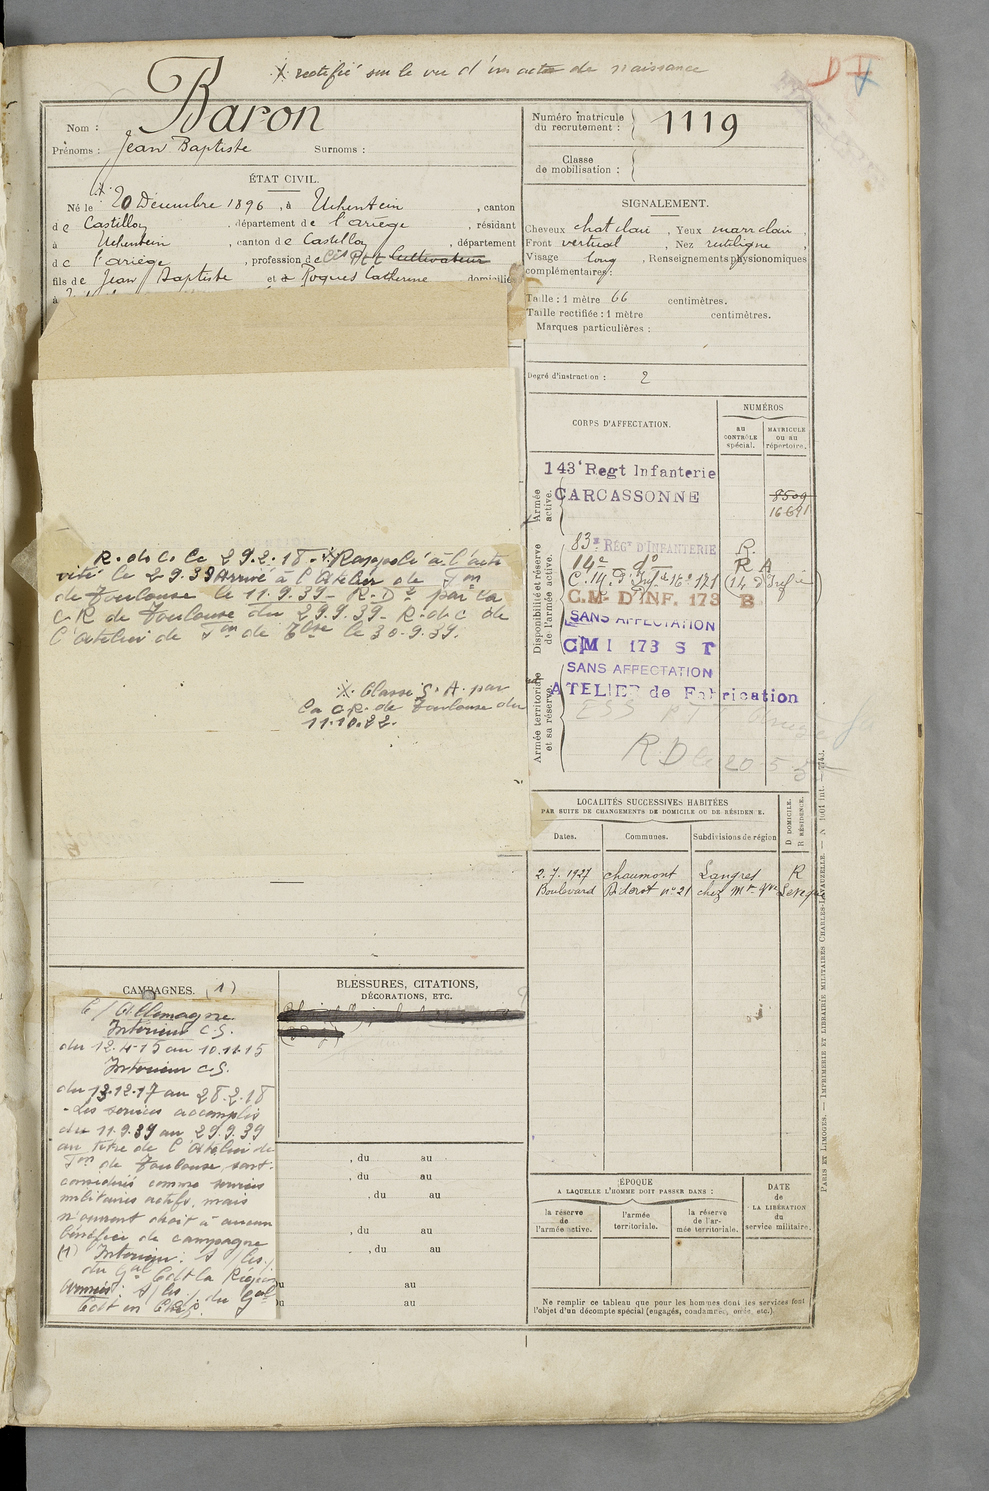 X rectifié sur le vu d'un acte de naissance
D V
Nom : Baron
Prénoms : Jean Baptiste Surnoms :
Numéro matricule du recrutement : 1119
Classe de mobilisation :
ÉTAT CIVIL.
Né le 20 Décembre 1896, à Uchentein, canton
de Castillon, département de l'ariège, résidant
à Uchentein, canton de Castillon, département
de l'ariège, profession de Cultivateur
fils de Jean Baptiste et de Rogues Catherine domiciliés
SIGNALEMENT.
Cheveux chat clair, Yeux marr clair,
Front vertical, Nez rectiligne,
Visage long, Renseignements physionomiques
complémentaires :
Taille : 1 mètre 66 centimètres.
Taille rectifiée : 1 mètre centimètres.
Marques particulières :
Degré d'instruction : 2
CORPS D'AFFECTATION.
NUMÉROS
au CONTRÔLE spécial.
MATRICULE ou au répertoire.
Armée active.
143e Regt Infanterie
CARCASSONNE
8509
16671
Disponibilité et réserve de l'armée active.
83e RÉGt D'INFANTERIE R.
14e do R A
C.M. D'INF. 173 B
SANS AFFECTATION
CMI 173 S T
SANS AFFECTATION
Armée territoriale et sa réserve.
ATELIER de Fabrication
R D le 20-5-
R. de C. le 29.2.18. X Rappelé à l'acti
vité le 29.39 Arrivé à l'Atelier de Fon
de Toulouse le 11.9.39 - R.D. par la
C.R de Toulouse du 29.9.39 - R. de C de
l'Atelier de Fon de Tlse le 30.9.39.
X. Classé S.A. par
la C.R. de Toulouse du
11.10.22.
LOCALITÉS SUCCESSIVES HABITÉES
PAR SUITE DE CHANGEMENTS DE DOMICILE OU DE RÉSIDENCE.
Dates. Communes. Subdivisions de région
D DOMICILE.
R RÉSIDENCE.
2.7.1927 Chaumont Langres R
Boulevard Diderot no 21 chez Mr
CAMPAGNES. (1)
C/ Allemagne
Intérieur C.S.
du 12.4.15 au 10.11.15
Intérieur C.S.
du 13.12.17 au 28.2.18
- Les services accomplis
du 11.9.39 au 29.9.39
au titre de l'Atelier de
Fon de Toulouse, sont
considérés comme services
militaires actifs, mais
n'ouvrent droit à aucun
bénéfice de campagne
(1) Intérieur :
du Gal Cdt la Région
Armées : du Gal
Cdt en Chef.
BLESSURES, CITATIONS,
DÉCORATIONS, ETC.
, du au
, du au
, du au
, du au
, du au
du au
du au
ÉPOQUE
A LAQUELLE L'HOMME DOIT PASSER DANS :
la réserve de l'armée active.
l'armée territoriale.
la réserve de l'armée territoriale.
DATE
de
LA LIBÉRATION
du
service militaire.
Ne remplir ce tableau que pour les hommes dont les services font
l'objet d'un décompte spécial (engagés, condamnés, omis, etc.)
PARIS ET LIMOGES. — IMPRIMERIE ET LIBRAIRIE MILITAIRES CHARLES-LAVAUZELLE.